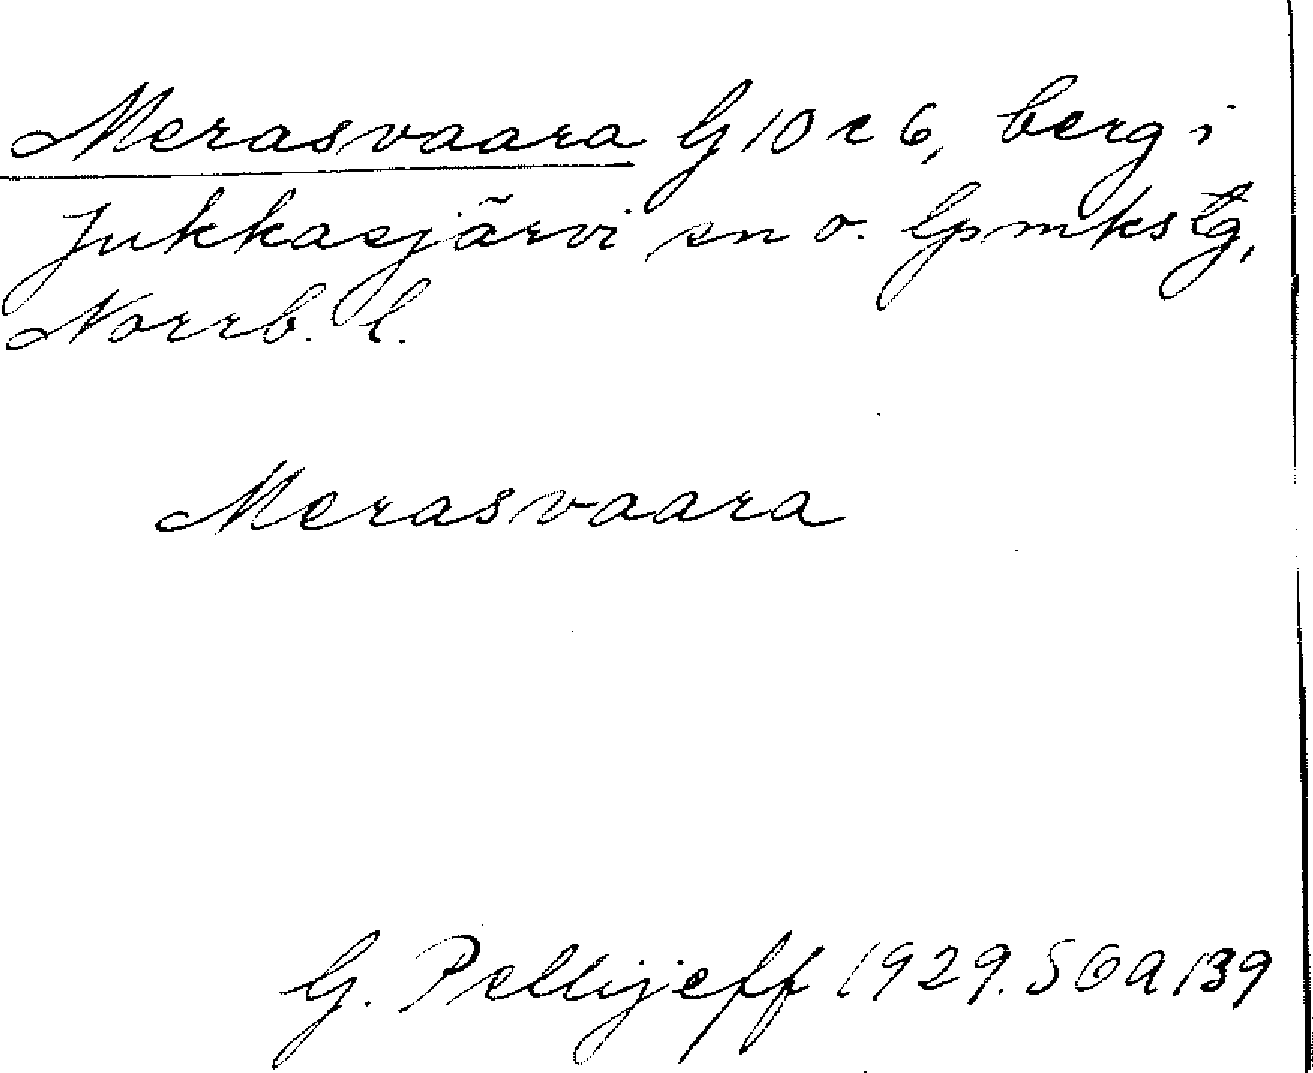 Merasvaara G 10 c 6, berg i
Jukkasjärvi sn o. lpmkstg,
Norrb. l.
Merasvaara
G. Pellijeff 1929. SOA 139